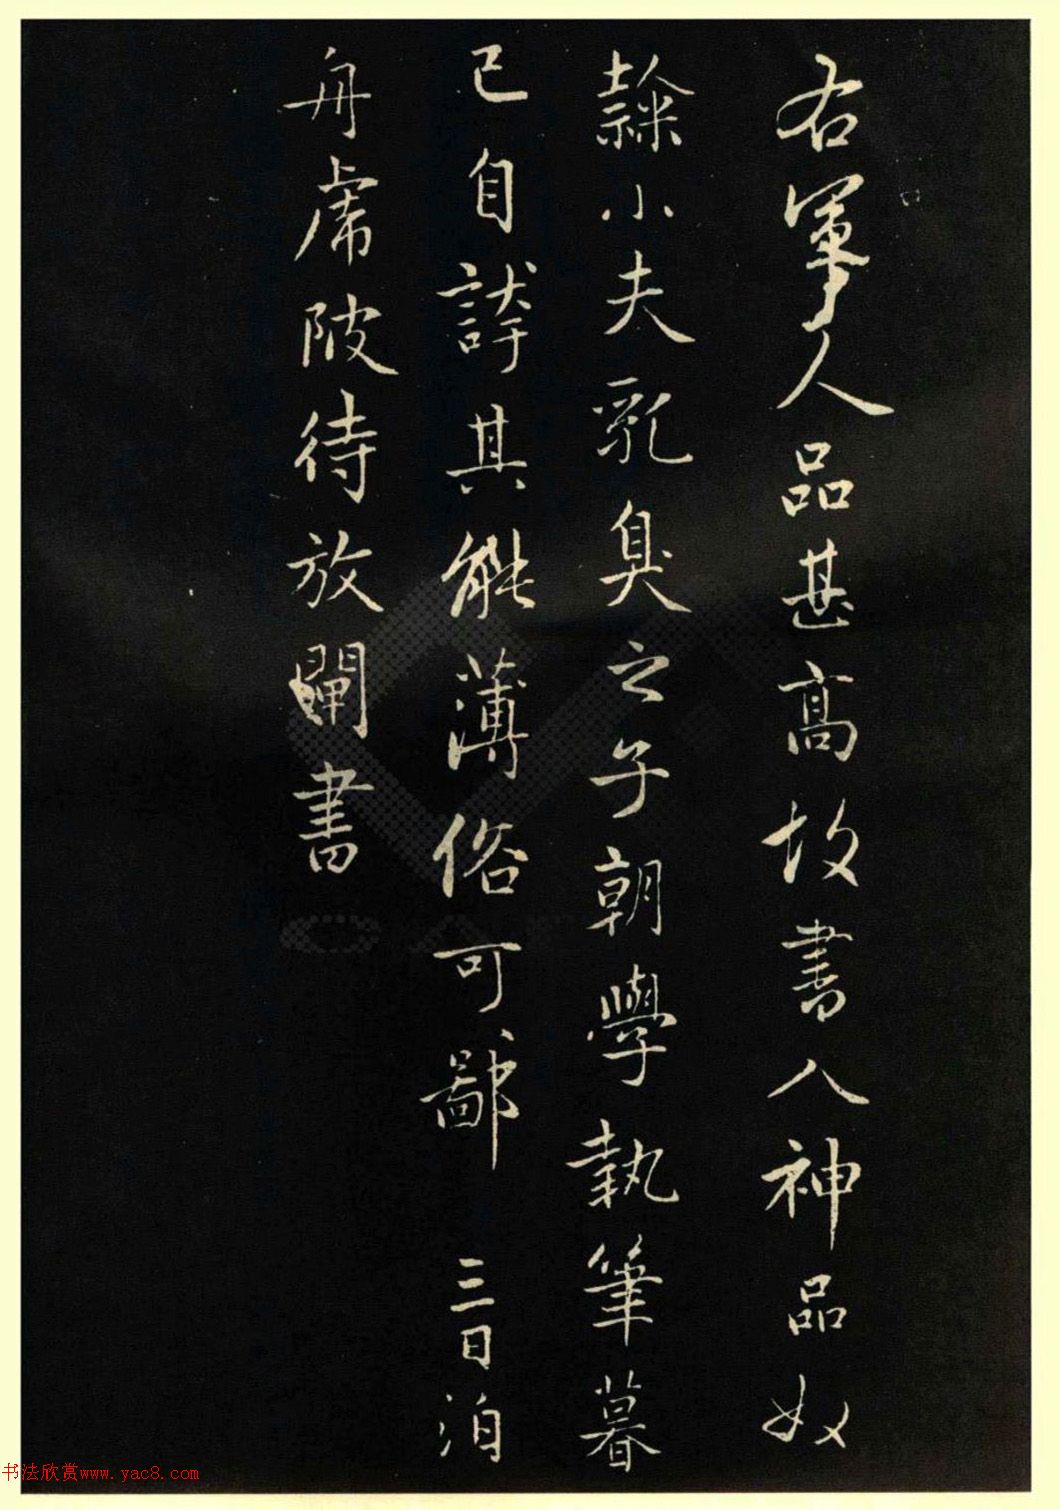 右軍人品甚高故書入神品奴
隸小夫乳臭之子朝學執筆暮
已自誇其能薄俗可鄙 三日泊
舟虎陂待放閘書
书法欣赏www.yac8.com